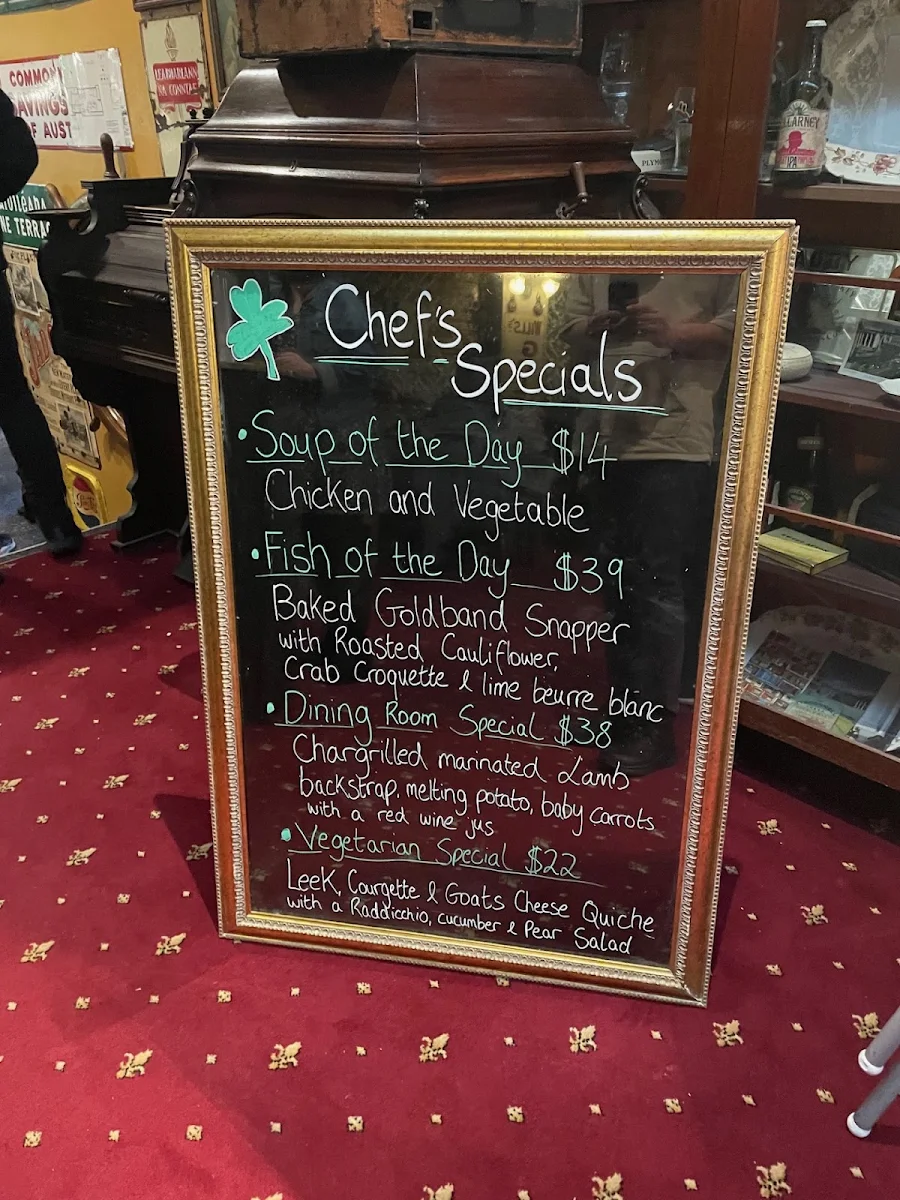 COMMON
SAVINGS
OF AUST
LEABHARLANN
NA CONNTAE
NE TERRA
PLYM
LARNEY
IPA
Chef's
Specials
• Soup of the Day $14
Chicken and Vegetable
• Fish of the Day $39
Baked Goldband Snapper
with Roasted Cauliflower,
Crab Croquette & lime beurre blanc
• Dining Room Special $38
Chargrilled marinated Lamb
backstrap, melting potato, baby carrots
with a red wine jus
• Vegetarian Special $22
Leek, Courgette & Goats Cheese Quiche
with a Raddicchio, cucumber & Pear Salad